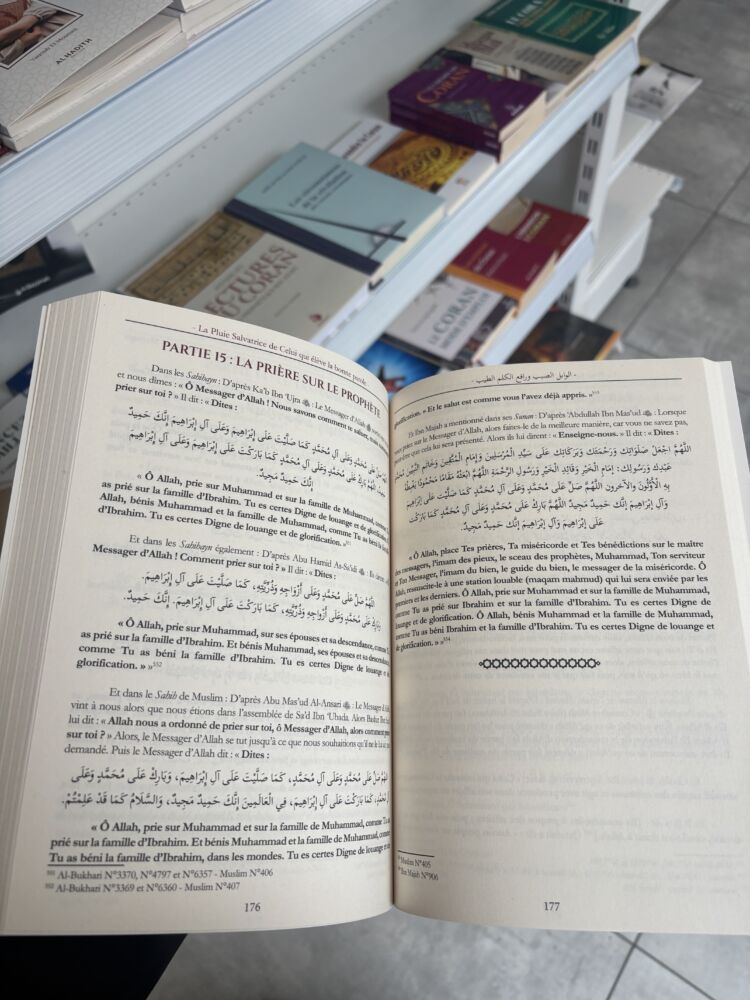 AL HADITH
CORAN
LECTURES
DU CORAN
LE CORAN
MODE D'EMPLOI
- La Pluie Salvatrice de Celui qui élève la bonne parole
PARTIE 15 : LA PRIÈRE SUR LE PROPHÈTE
Dans les Sahihayn : D'après Ka'b Ibn 'Ujra : Le Messager d'Allah
et nous dîmes : « Ô Messager d'Allah ! Nous savons comment te saluer, mais
prier sur toi ? » Il dit : « Dites :
اللَّهُمَّ صَلِّ عَلَى مُحَمَّدٍ وَعَلَى آلِ مُحَمَّدٍ كَمَا صَلَّيْتَ عَلَى إِبْرَاهِيمَ وَعَلَى آلِ إِبْرَاهِيمَ إِنَّكَ حَمِيدٌ
مَجِيدٌ، اللَّهُمَّ بَارِكْ عَلَى مُحَمَّدٍ وَعَلَى آلِ مُحَمَّدٍ كَمَا بَارَكْتَ عَلَى إِبْرَاهِيمَ وَعَلَى آلِ إِبْرَاهِيمَ
إِنَّكَ حَمِيدٌ مَجِيدٌ.
« Ô Allah, prie sur Muhammad et sur la famille de Muhammad, comme
as prié sur la famille d'Ibrahim. Tu es certes Digne de louange et de glorification.
Allah, bénis Muhammad et la famille de Muhammad, comme Tu as béni la famille
d'Ibrahim. Tu es certes Digne de louange et de glorification. »
Et dans les Sahihayn également : D'après Abu Hamid As-Sa'idi : Ils dirent
Messager d'Allah ! Comment prier sur toi ? » Il dit : « Dites :
اللَّهُمَّ صَلِّ عَلَى مُحَمَّدٍ وَعَلَى أَزْوَاجِهِ وَذُرِّيَّتِهِ، كَمَا صَلَّيْتَ عَلَى آلِ إِبْرَاهِيمَ.
بَارِكْ عَلَى مُحَمَّدٍ وَعَلَى أَزْوَاجِهِ وَذُرِّيَّتِهِ، كَمَا بَارَكْتَ عَلَى آلِ إِبْرَاهِيمَ. إِنَّكَ حَمِيدٌ
« Ô Allah, prie sur Muhammad, sur ses épouses et sa descendance, comme
as prié sur la famille d'Ibrahim. Et bénis Muhammad, ses épouses et sa descendance,
comme Tu as béni la famille d'Ibrahim. Tu es certes Digne de louange et
glorification. » »³⁵²
Et dans le Sahih de Muslim : D'après Abu Mas'ud Al-Ansari : Le Messager d'Allah
vint à nous alors que nous étions dans l'assemblée de Sa'd Ibn 'Ubada. Alors Bashir Ibn Sa'd
lui dit : « Allah nous a ordonné de prier sur toi, ô Messager d'Allah, alors comment prier
sur toi ? » Alors, le Messager d'Allah se tut jusqu'à ce que nous souhaitions qu'il ne lui ait
demandé. Puis le Messager d'Allah dit : « Dites :
اللَّهُمَّ صَلِّ عَلَى مُحَمَّدٍ وَعَلَى آلِ مُحَمَّدٍ، كَمَا صَلَّيْتَ عَلَى آلِ إِبْرَاهِيمَ، وَبَارِكْ عَلَى مُحَمَّدٍ وَعَلَى
آلِ مُحَمَّدٍ، كَمَا بَارَكْتَ عَلَى آلِ إِبْرَاهِيمَ، فِي الْعَالَمِينَ إِنَّكَ حَمِيدٌ مَجِيدٌ، وَالسَّلَامُ كَمَا قَدْ عَلِمْتُمْ.
« Ô Allah, prie sur Muhammad et sur la famille de Muhammad, comme Tu as
prié sur la famille d'Ibrahim. Et bénis Muhammad et la famille de Muhammad, comme
Tu as béni la famille d'Ibrahim, dans les mondes. Tu es certes Digne de louange et de
³⁵¹ Al-Bukhari N°3370, N°4797 et N°6357 - Muslim N°406
³⁵² Al-Bukhari N°3369 et N°6360 - Muslim N°407
176
- الوابل الصيب ورافع الكلم الطيب -
glorification. » Et le salut est comme vous l'avez déjà appris. »³⁵³
Et Ibn Majah a mentionné dans ses Sunan : D'après 'Abdullah Ibn Mas'ud : Lorsque
vous priez sur le Messager d'Allah, alors faites-le de la meilleure manière, car vous ne savez pas,
peut-être que cela lui sera présenté. Alors ils lui dirent : « Enseigne-nous. » Il dit : « Dites :
اللَّهُمَّ اجْعَلْ صَلَوَاتِكَ وَرَحْمَتَكَ وَبَرَكَاتِكَ عَلَى سَيِّدِ الْمُرْسَلِينَ وَإِمَامِ الْمُتَّقِينَ وَخَاتَمِ النَّبِيِّينَ مُحَمَّدٍ
عَبْدِكَ وَرَسُولِكَ: إِمَامِ الْخَيْرِ وَقَائِدِ الْخَيْرِ وَرَسُولِ الرَّحْمَةِ اللَّهُمَّ ابْعَثْهُ مَقَامًا مَحْمُودًا يَغْبِطُهُ
بِهِ الْأَوَّلُونَ وَالْآخِرُونَ اللَّهُمَّ صَلِّ عَلَى مُحَمَّدٍ وَعَلَى آلِ مُحَمَّدٍ كَمَا صَلَّيْتَ عَلَى إِبْرَاهِيمَ
وَآلِ إِبْرَاهِيمَ إِنَّكَ حَمِيدٌ مَجِيدٌ اللَّهُمَّ بَارِكْ عَلَى مُحَمَّدٍ وَعَلَى آلِ مُحَمَّدٍ كَمَا بَارَكْتَ
عَلَى إِبْرَاهِيمَ وَآلِ إِبْرَاهِيمَ إِنَّكَ حَمِيدٌ مَجِيدٌ.
« Ô Allah, place Tes prières, Ta miséricorde et Tes bénédictions sur le maître
des messagers, l'imam des pieux, le sceau des prophètes, Muhammad, Ton serviteur
et Ton Messager, l'imam du bien, le guide du bien, le messager de la miséricorde. Ô
Allah, ressuscite-le à une station louable (maqam mahmud) qui lui sera enviée par les
premiers et les derniers. Ô Allah, prie sur Muhammad et sur la famille de Muhammad,
comme Tu as prié sur Ibrahim et sur la famille d'Ibrahim. Tu es certes Digne de
louange et de glorification. Ô Allah, bénis Muhammad et la famille de Muhammad,
comme Tu as béni Ibrahim et la famille d'Ibrahim. Tu es certes Digne de louange et
de glorification. » »³⁵⁴
Muslim N°405
Ibn Majah N°906
177